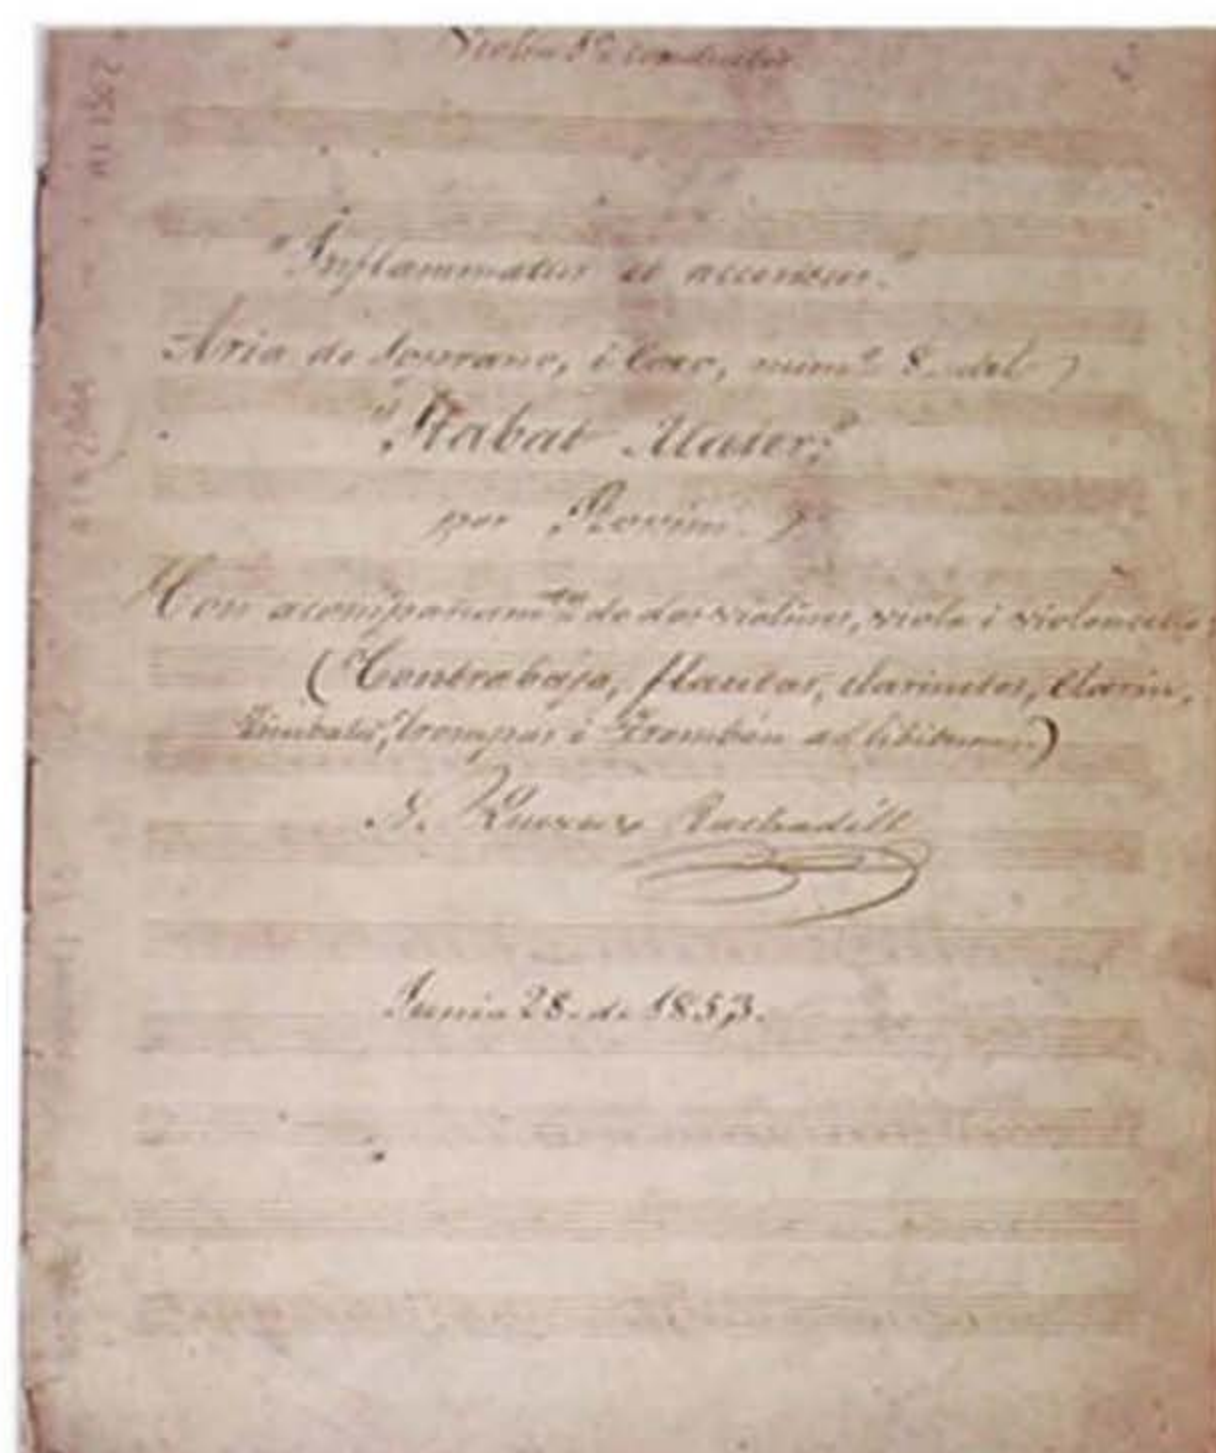 Violin 1º conductor
"Inflammatus et accensus."
Aria de Soprano, i Coro, núm.º 8. del
"Stabat Mater,"
por Rossini.
Con acompañam.to de dos violines, viola i violoncello
(Contrabajo, flautas, clarinetes, clarin,
Timbales, trompas i Trombón ad libitum)
J.
Junio 28. de 1853.